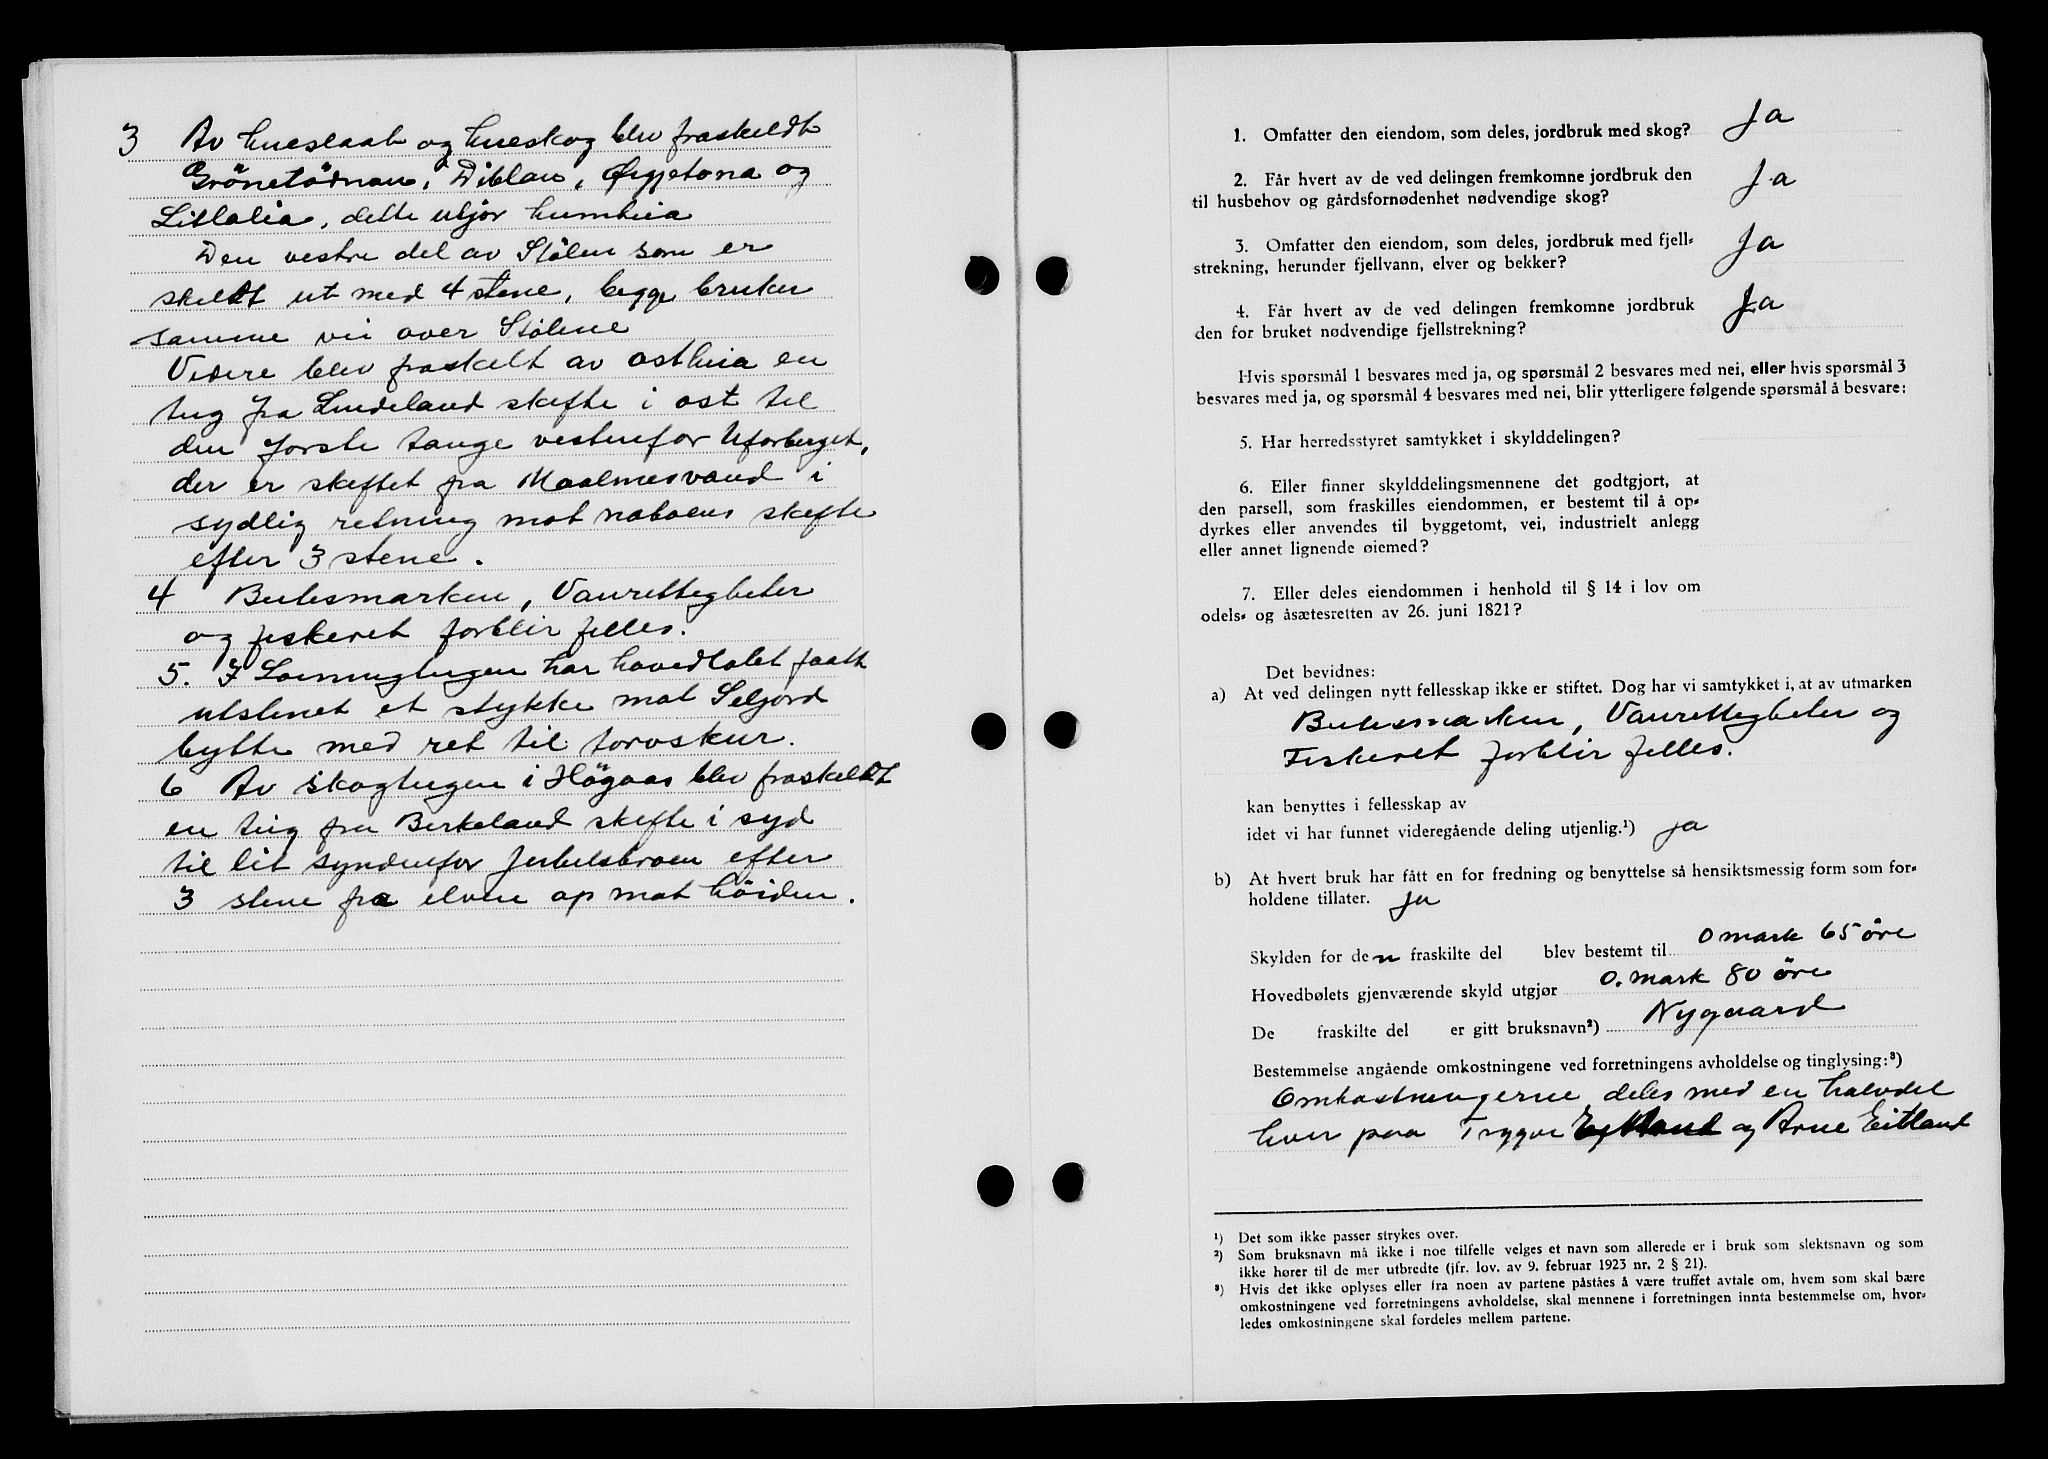 3 Av hueslaat og hueskog blev fraskeldt
Grönetödnan, Diblan, Øygjetona og
Litlalia, dette utjör humheia
Den vestre del av Stölen som er
skeldt ut med 4 stene, begge bruker
samme vei over Stölene
Videre blev fraskelt av astheia en
teig fra Lindeland skifte i ost til
den förste tange vestenfor Uforberget,
der er skeftet fra Maalmesvand i
sydlig retning mot naboens skefte
efter 3 stene.
4 Beitesmarken, Vanrettegheter
og feskeret forblir felles.
5. I har hovedbølet faatt
utstenet et stykke mot Seljord
bytte med ret til torvskur.
6 Av skogteigen i Högaas blev fraskeldt
en teig fra Berkeland skefte i syd
til lit syndenfor efter
3 stene fra elven op mot höiden.
1. Omfatter den eiendom, som deles, jordbruk med skog? Ja
2. Får hvert av de ved delingen fremkomne jordbruk den
til husbehov og gårdsfornødenhet nødvendige skog? Ja
3. Omfatter den eiendom, som deles, jordbruk med fjell-
strekning, herunder fjellvann, elver og bekker? Ja
4. Får hvert av de ved delingen fremkomne jordbruk
den for bruket nødvendige fjellstrekning? Ja
Hvis spørsmål 1 besvares med ja, og spørsmål 2 besvares med nei, eller hvis spørsmål 3
besvares med ja, og spørsmål 4 besvares med nei, blir ytterligere følgende spørsmål å besvare:
5. Har herredsstyret samtykket i skylddelingen?
6. Eller finner skylddelingsmennene det godtgjort, at
den parsell, som fraskilles eiendommen, er bestemt til å op-
dyrkes eller anvendes til byggetomt, vei, industrielt anlegg
eller annet lignende øiemed?
7. Eller deles eiendommen i henhold til § 14 i lov om
odels- og åsætesretten av 26. juni 1821?
Det bevidnes:
a) At ved delingen nytt fellesskap ikke er stiftet. Dog har vi samtykket i, at av utmarken
Beitesmarken, Vanrettegheter og
Feskeret forblir felles.
kan benyttes i fellesskap av
idet vi har funnet videregående deling utjenlig.¹) ja
b) At hvert bruk har fått en for fredning og benyttelse så hensiktsmessig form som for-
holdene tillater. Ja
Skylden for den fraskilte del blev bestemt til 0 mark 65 öre
Hovedbølets gjenværende skyld utgjør 0. mark 80 öre
De fraskilte del er gitt bruksnavn²) Nygaard
Bestemmelse angående omkostningene ved forretningens avholdelse og tinglysing:³)
Omkostningerne deles med en halvdel
hver paa Trygve Eitland og Arne Eitland
¹) Det som ikke passer strykes over.
²) Som bruksnavn må ikke i noe tilfelle velges et navn som allerede er i bruk som slektsnavn og som
ikke hører til de mer utbredte (jfr. lov. av 9. februar 1923 nr. 2 § 21).
³) Hvis det ikke oplyses eller fra noen av partene påståes å være truffet avtale om, hvem som skal bære
omkostningene ved forretningens avholdelse, skal mennene i forretningen innta bestemmelse om, hvor-
ledes omkostningene skal fordeles mellem partene.